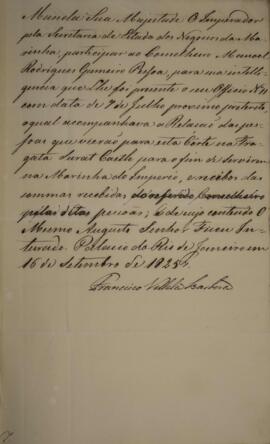 Manda Sua Magestade O Imperador
pela Secretaria de Estado dos Negocios da Ma-
rinha, participar ao Conselheiro Manoel
Rodrigues Gameiro Pessoa, para sua intelli-
gencia que Lhe foi presente o seu Officio Nº 11
com data de 7 de Julho proximo preterito
o qual acompanhava a Relação das pes-
soas que vierão para esta Corte na Fra-
gata Surat Castle para o fim de servirem
na Marinha do Imperio, e recibos das
sommas recebidas, do referido Conselheiro
pelas ditas pessoas; e de cujo contendo O
Mesmo Augusto Senhor Ficou In-
teirado. Palacio do Rio de Janeiro em
16 de Setembro de 1825.
Francisco Villela Barboza